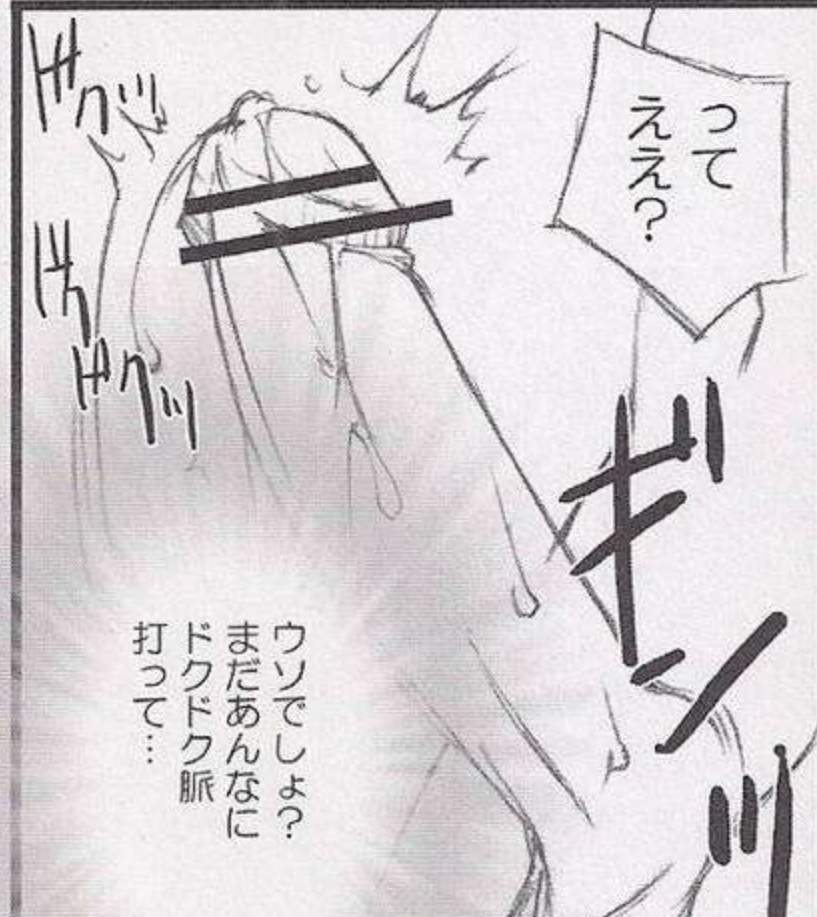 って
ええ?
ギンッ
ドクッ
ドク
ドクッ
ウソでしょ?
まだあんなに
ドクドク脈
打って…